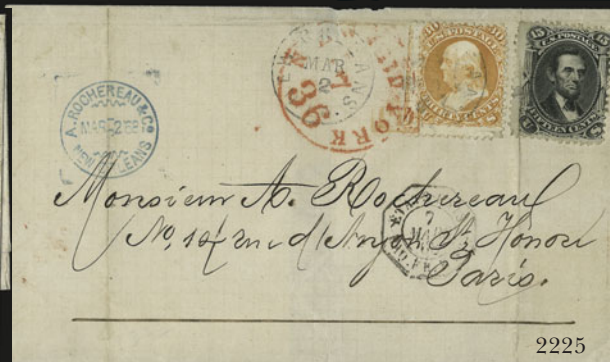 A. ROCHEREAU & Co
MAR 2 68
NEW ORLEANS
NEW ORLEANS
MAR
2
NEW YORK
7
36
30 U.S. POSTAGE 30
THIRTY CENTS
15 U.S. POSTAGE 15
FIFTEEN CENTS
Monsieur A. Rochereau
No, 14 rue d'Anjou St. Honoré
Paris.
7
2225